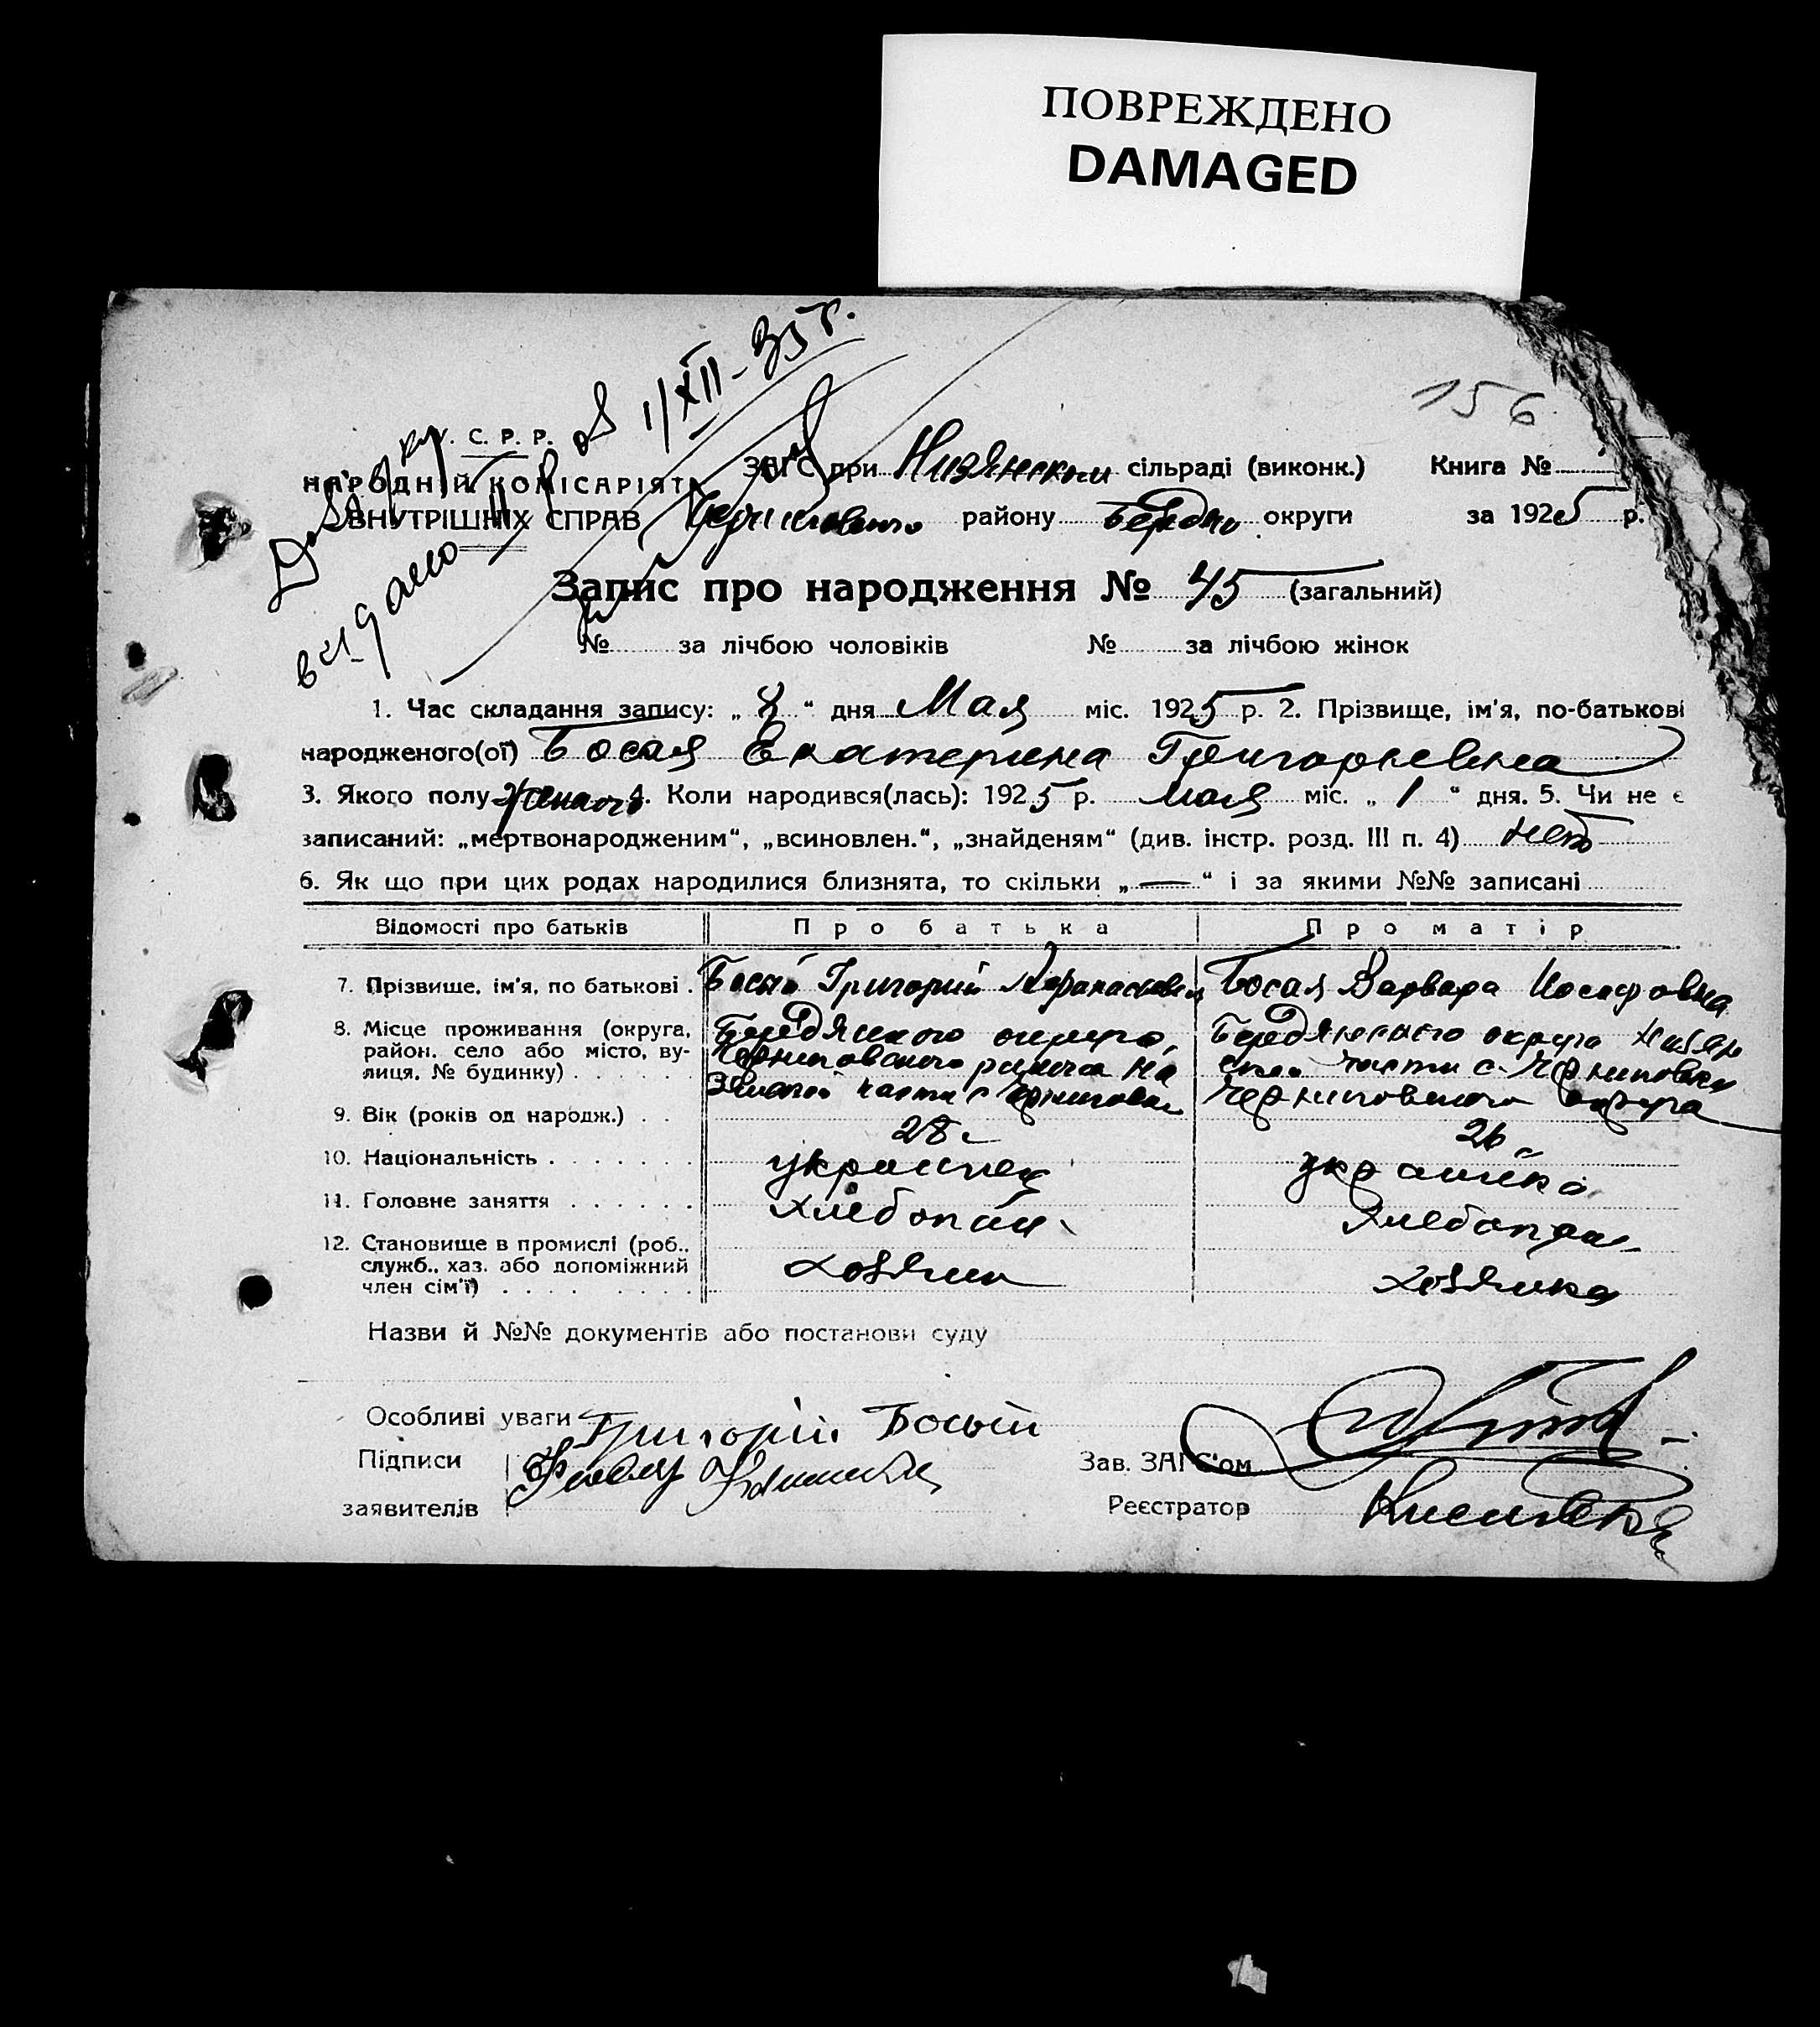 ПОВРЕЖДЕНО
DAMAGED
156
I/XII-35 г.
У. С. Р. Р.
НАРОДНІЙ КОМІСАРІЯТ
ВНУТРІШНІХ СПРАВ
видано
ЗАГС при Низянском сільраді (виконк.) Книга №
Черниговского району Бердян округи за 1925 р.
Запис про народження № 45 (загальний)
№ за лічбою чоловіків № за лічбою жінок
1. Час складання запису: „ 8 “ дня Мая міс. 1925 р. 2. Прізвище, ім'я, по-батькові
народженого(ої) Босая Екатерина Григорьевна
3. Якого полу женского 4. Коли народився(лась): 1925 р. мая міс. „ 1 “ дня. 5. Чи не є
записаний: „мертвонародженим“, „всиновлен.“, „знайденям“ (див. інстр. розд. III п. 4) нет
6. Як що при цих родах народилися близнята, то скільки „ — “ і за якими №№ записані
Відомості про батьків Про батька Про матір
7. Прізвище, ім'я, по батькові . Босый Григорий Афанасьевич Босая Варвара Иосифовна
8. Місце проживання (округа, район, село або місто, вулиця, № будинку) Бердянского округа, Черниговского района Низянской части с Черниговки Бердянского округа Низянской части с. Черниговки Черниговского округа
9. Вік (років од народж.) . . 28 26
10. Національність . . . . . . украинец украинка
11. Головне заняття . . . . . . хлебопаш. хлебопаш.
12. Становище в промислі (роб., служб., хаз. або допоміжний член сім'ї) хозяин хозяйка
Назви й №№ документів або постанови суду
Особливі уваги
Підписи Григорій Босый
Зав. ЗАГС'ом
заявителів
Реєстратор